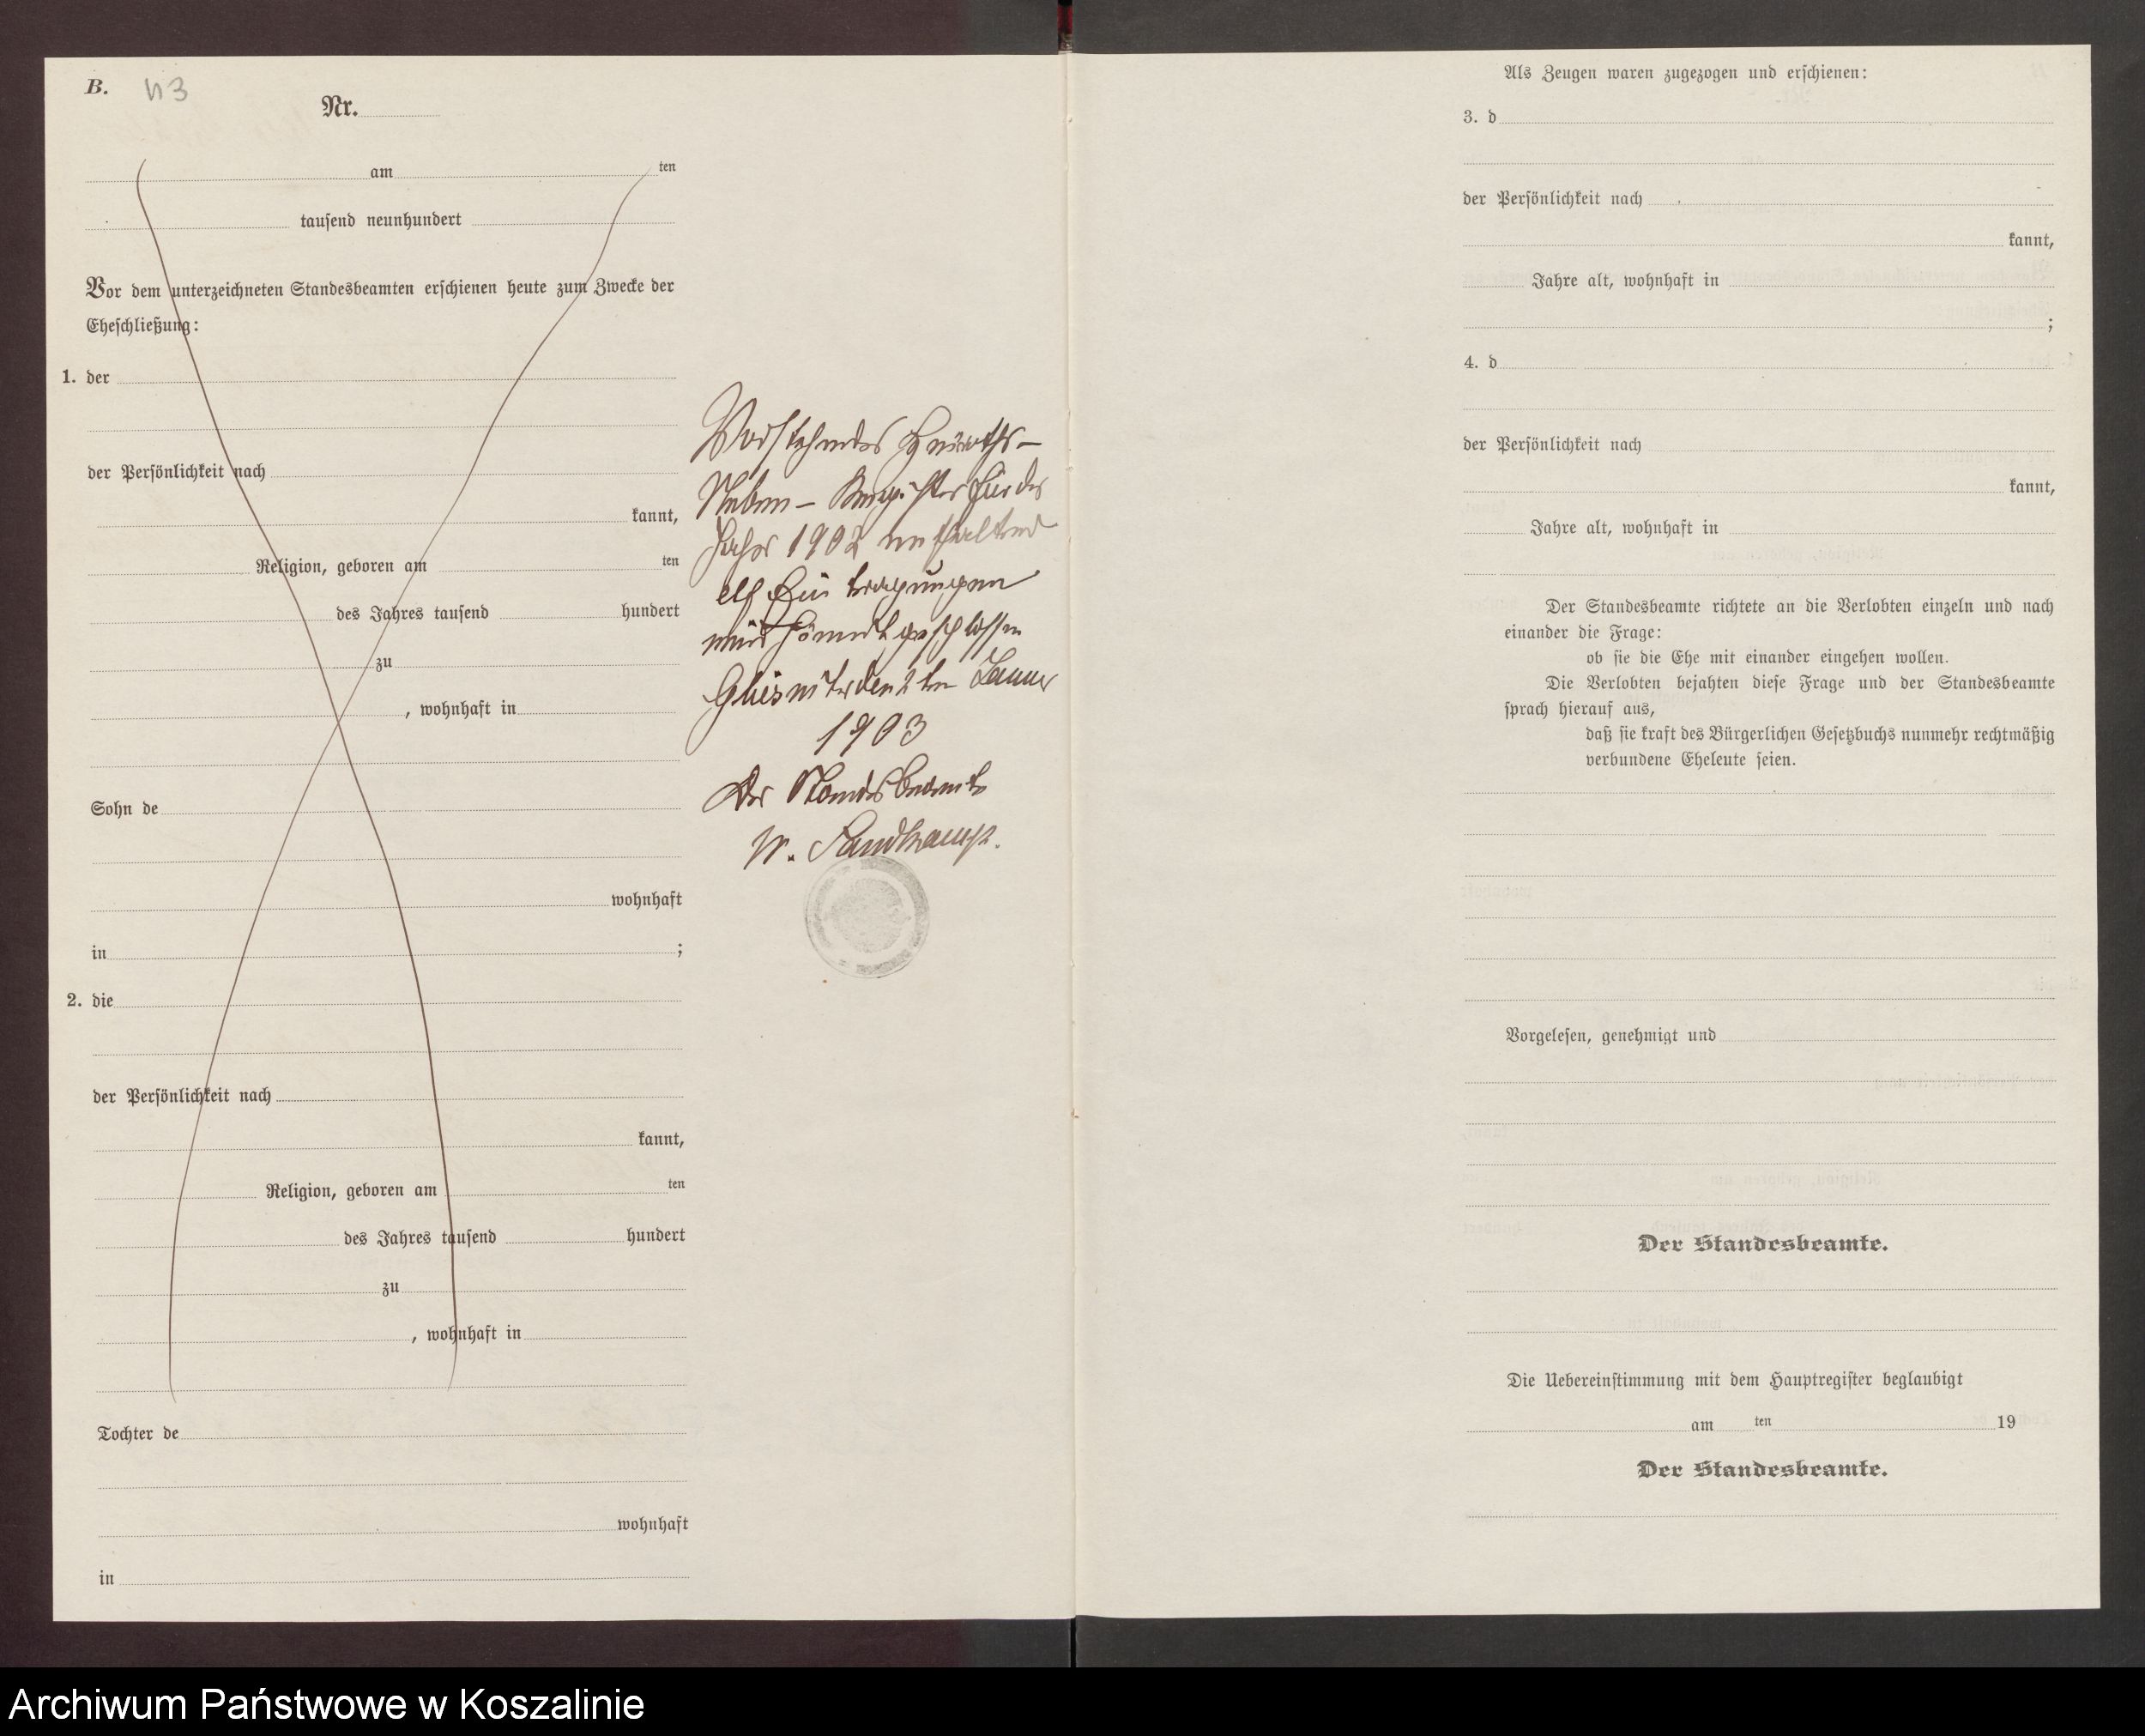 B. 43
Nr.
am ten
tausend neunhundert
Vor dem unterzeichneten Standesbeamten erschienen heute zum Zwecke der
Eheschließung:
1. der
der Persönlichkeit nach
kannt,
Religion, geboren am ten
des Jahres tausend hundert
zu
, wohnhaft in
Sohn de
wohnhaft
in ;
2. die
der Persönlichkeit nach
kannt,
Religion, geboren am ten
des Jahres tausend hundert
zu
, wohnhaft in
Tochter de
wohnhaft
in
Vorstehendes Heiraths-
Neben-Register für das
Jahr 1902 enthaltend
elf Eintragungen
wird somit geschlossen
den 2ten Januar
1903
Der Standesbeamte
W. Sandkamp.
Als Zeugen waren zugezogen und erschienen:
3. d
der Persönlichkeit nach
kannt,
Jahre alt, wohnhaft in
;
4. d
der Persönlichkeit nach
kannt,
Jahre alt, wohnhaft in
Der Standesbeamte richtete an die Verlobten einzeln und nach
einander die Frage:
ob sie die Ehe mit einander eingehen wollen.
Die Verlobten bejahten diese Frage und der Standesbeamte
sprach hierauf aus,
daß sie kraft des Bürgerlichen Gesetzbuchs nunmehr rechtmäßig
verbundene Eheleute seien.
Vorgelesen, genehmigt und
Der Standesbeamte.
Die Uebereinstimmung mit dem Hauptregister beglaubigt
am ten 19
Der Standesbeamte.
Archiwum Państwowe w Koszalinie